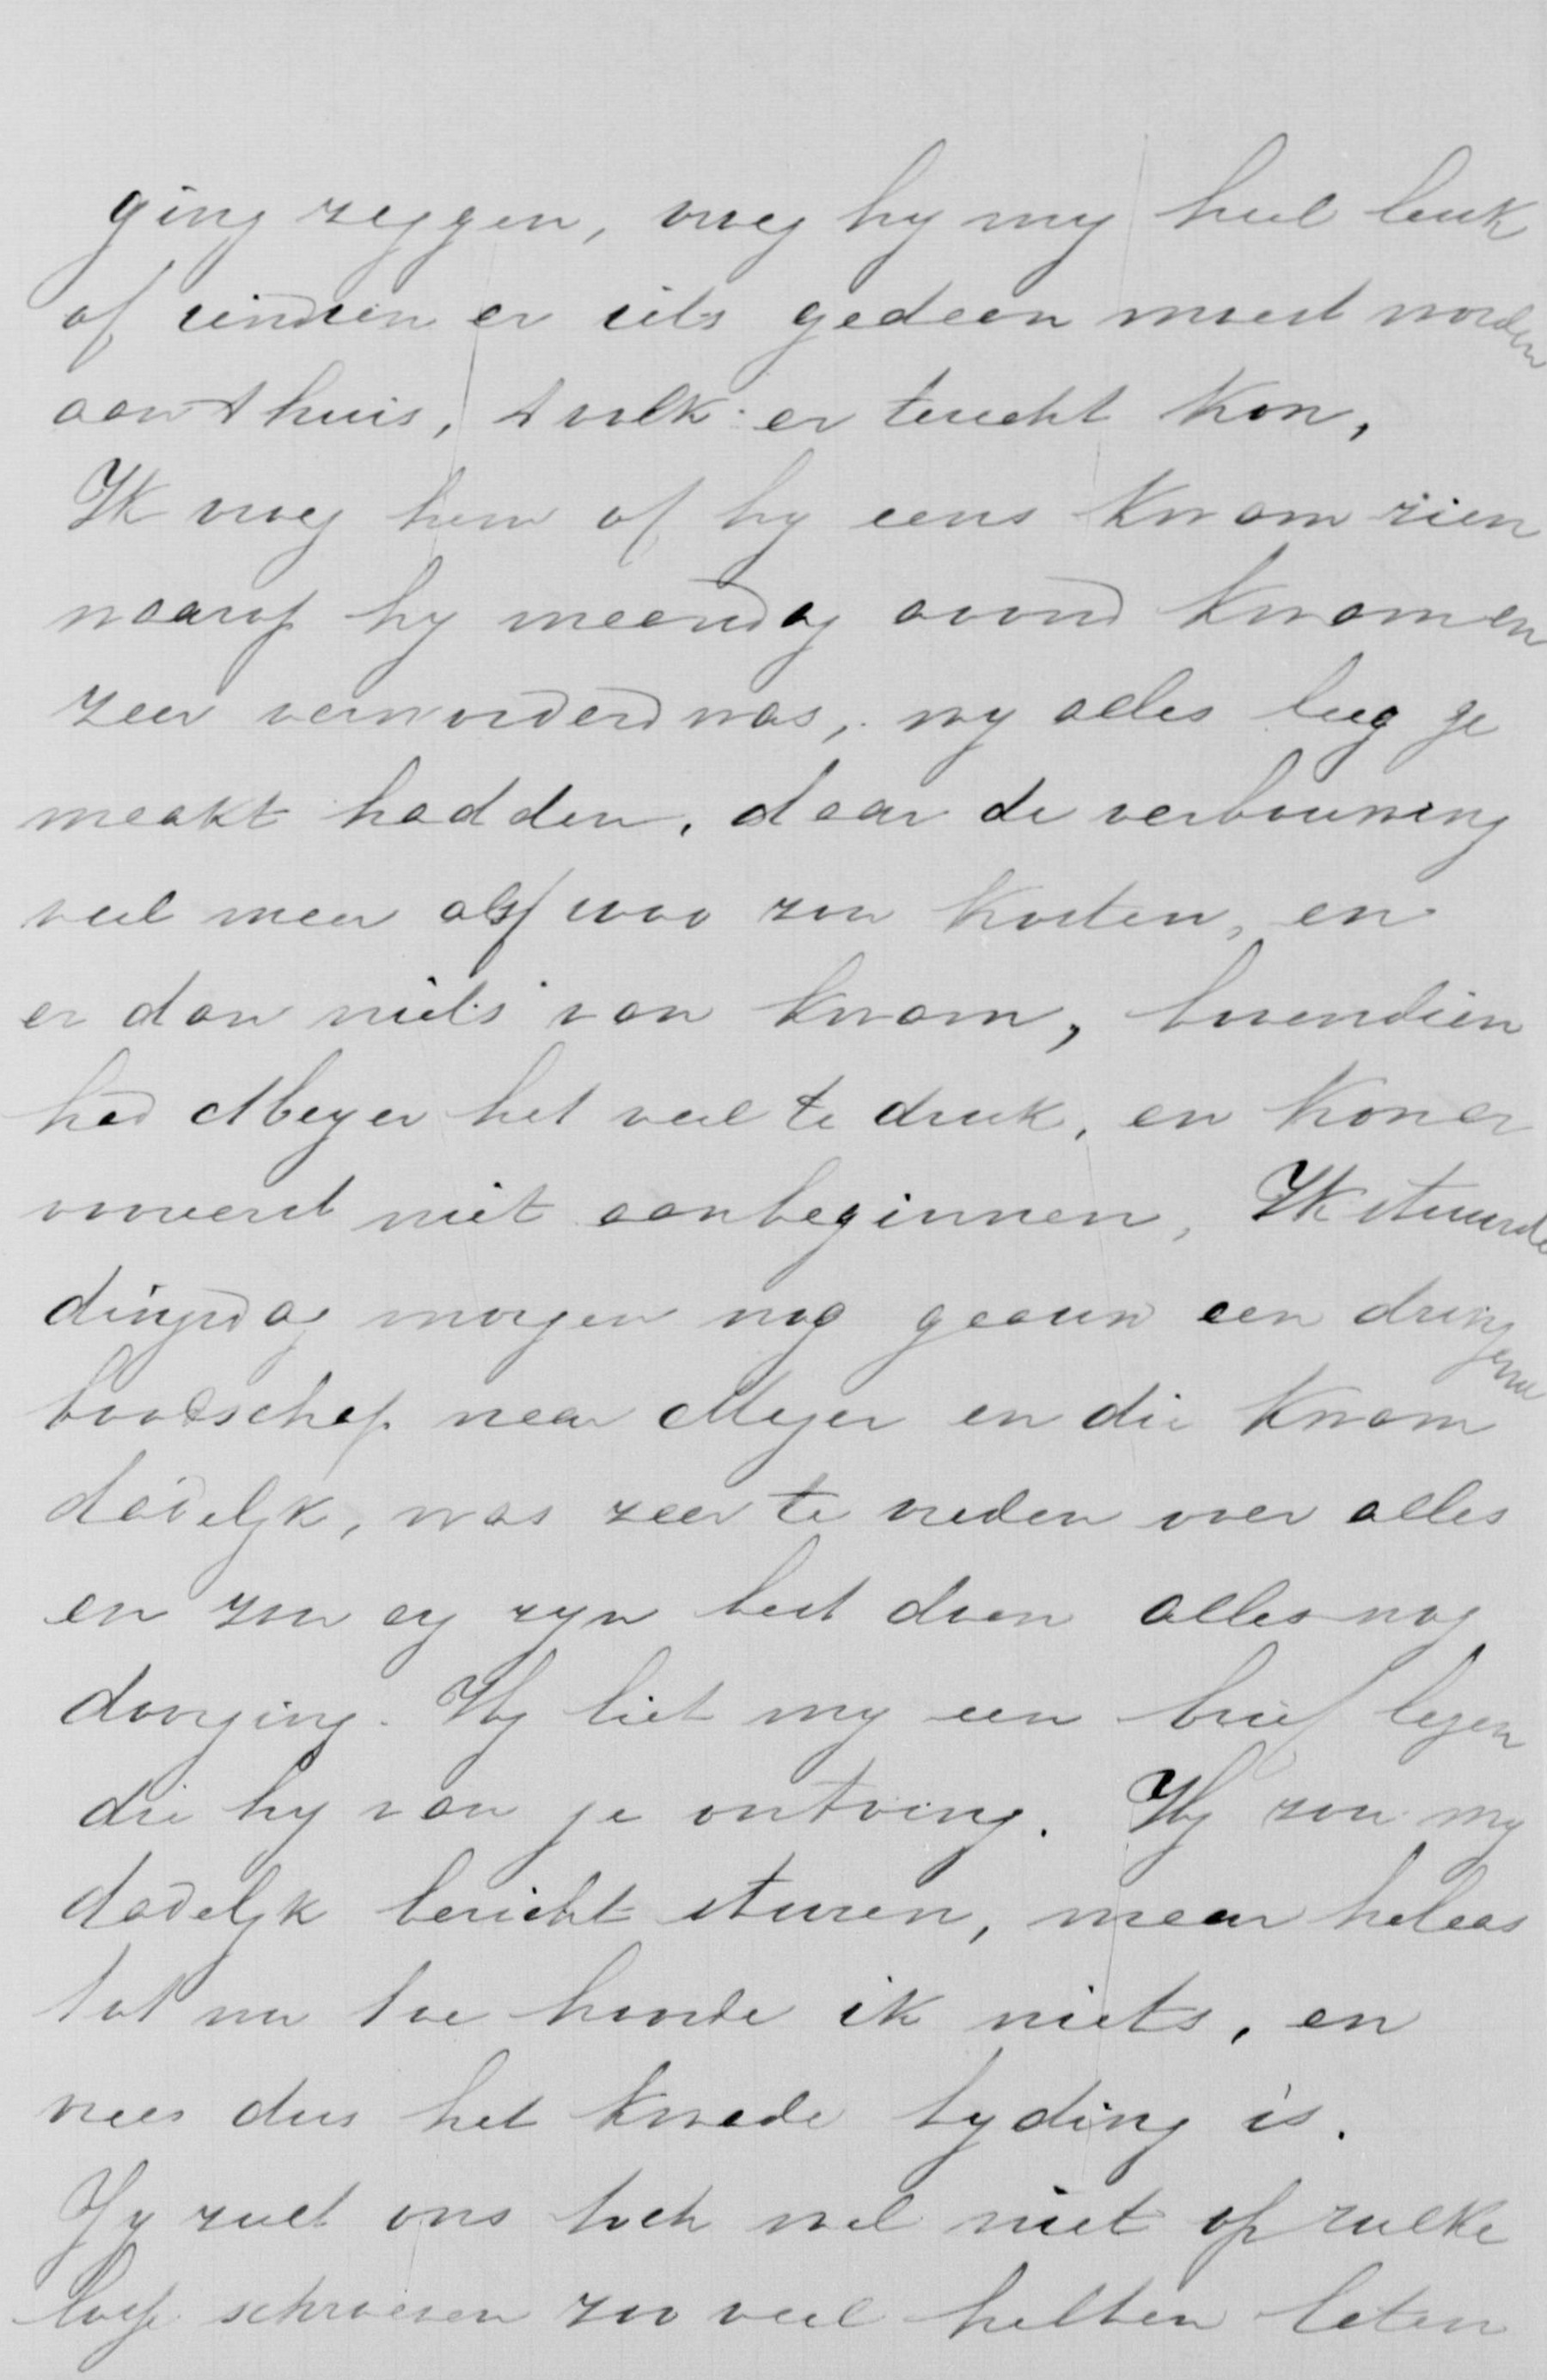 ging zeggen, vroeg hy my heel leuk
of indien er iets gedaan moest worden
aan 't huis, 't volk er terecht kon,
Ik vroeg hem of hy eens kwam zien
waarop hy maandag avond kwam en
zeer verwonderd was, wy alles leeg ge
maakt hadden, daar de verbouwing
veel meer als f 1000 zou kosten, en
er dan niets van kwam, bovendien
had Meyer het veel te druk, en kon er
vooreerst niet aan beginnen, Ik stuurde
dingsdag morgen nog gaauw een dringende
boodschap naar Meyer en die kwam
dadelyk, was zeer te vreden over alles
en zou zyn best doen alles nog
doorging. Hy liet my een brief lezen
die hy van je ontving. Hy zou my
dadelyk bericht sturen, maar helaas
tot nu toe hoorde ik niets, en
vrees dus het kwade tyding is.
Jy zult ons toch wel niet op zulke
schroeven zoo veel hebben laten